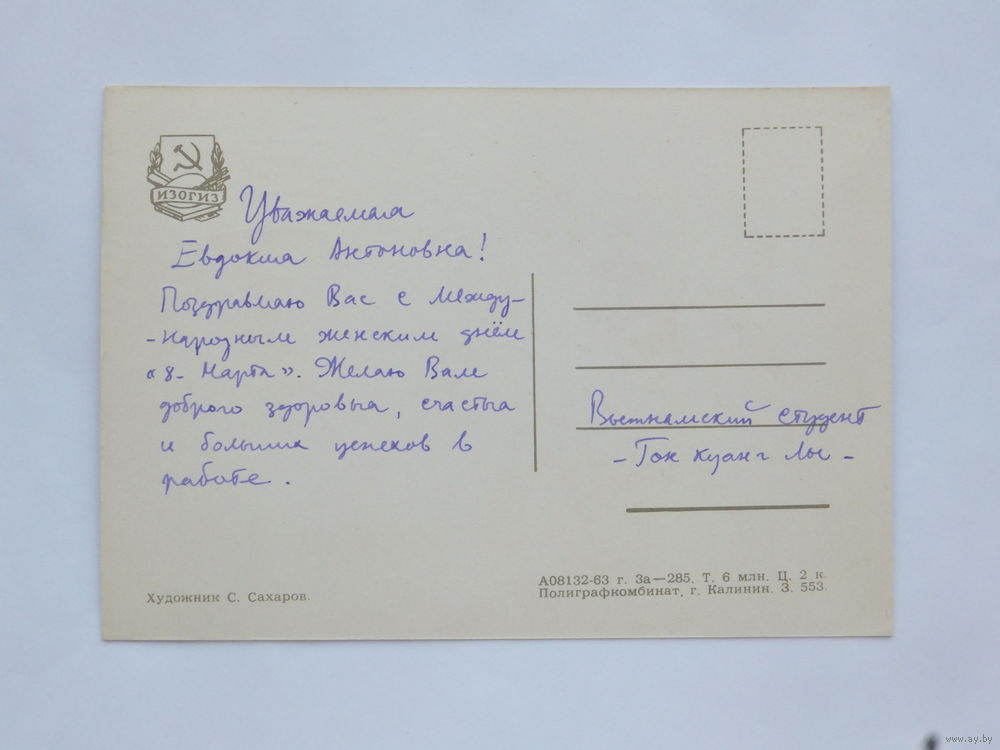 ИЗОГИЗ
Уважаемая
Евдокия Антоновна!
Поздравляю Вас с Между-
-народным женским днём
"8- Марта". Желаю Вам
доброго здоровья, счастья
и больших успехов в
работе.
Вьетнамский студент
- Тон Куанг Лы -
Художник С. Сахаров.
А08132-63 г. За—285. Т. 6 млн. Ц. 2 к.
Полиграфкомбинат, г. Калинин. З. 553.
www.ay.by